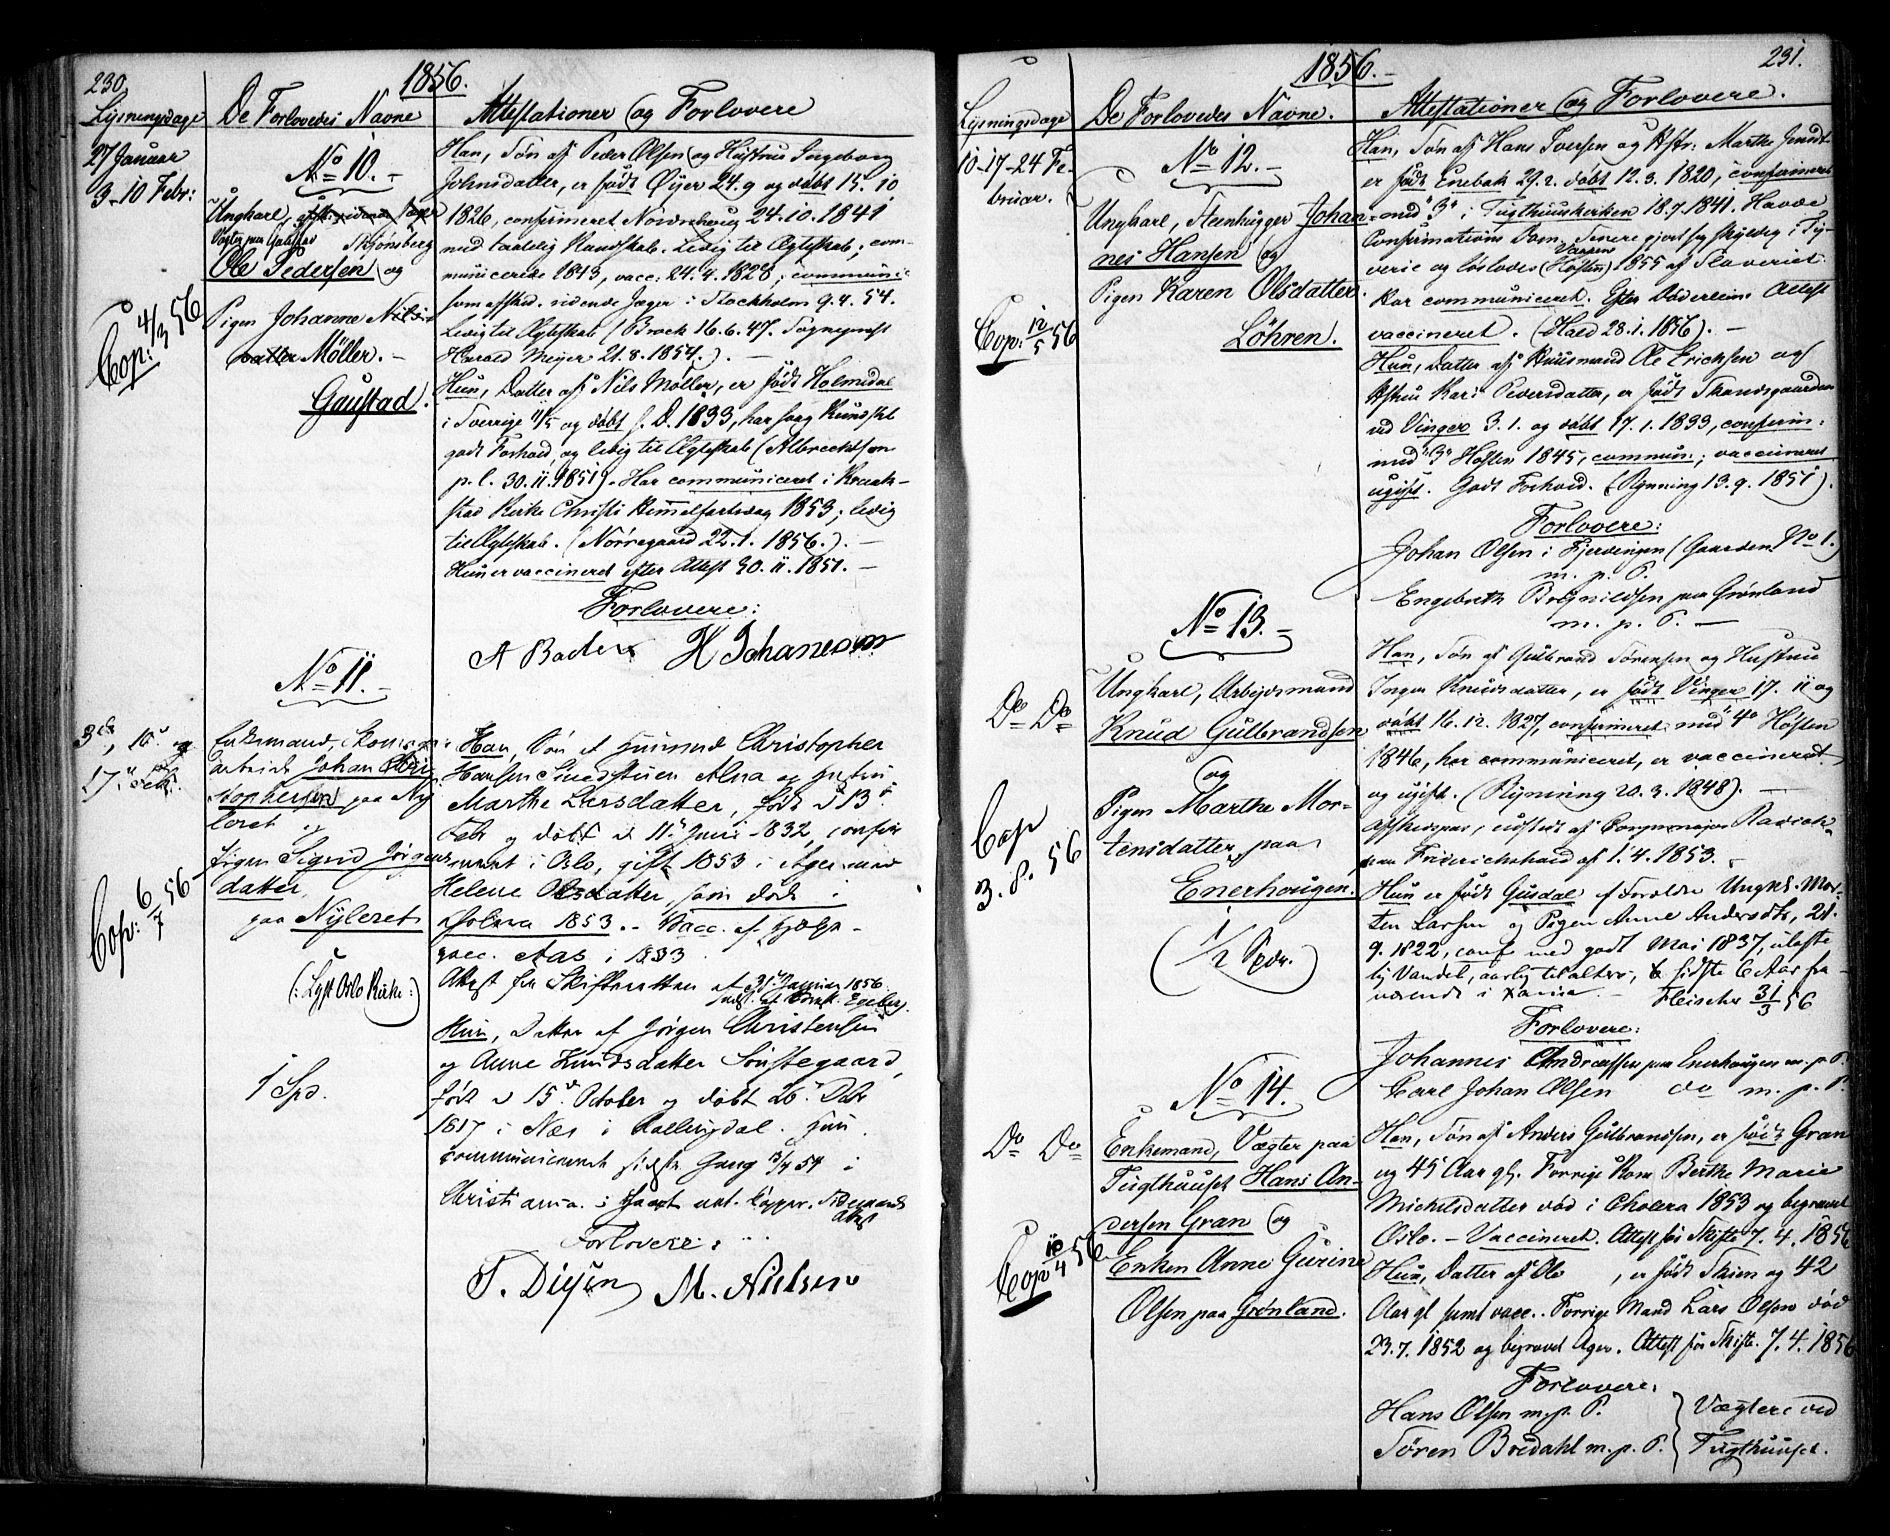 230.
1856.
Lysningsdage
De Forlovedes Navne
Attestationer og Forlovere
27 Januar
3-10 Febr:
No 10.-
Ungkarl,
Vægter paa Galstad
Ole Pedersen og
Pigen Johanne Nils-
datter Møller.-
Gaustad.
Cop: 4/3 56
Han, Søn af Peder Olsen og Hustrue Ingeborg
Johnsdatter, er født Øyer 24.9 og døbt 15.10
1826, confirmeret 24.10.1841
med taalelig Kundskab. Ledig til Ægteskab; com-
municerede 1843, vacc. 24.4.1828; communi-
som afskd. ridende Jæger i Stockholm 9.4.54.
Ledig til Ægteskab (Brock 16.6.47. Sognepræst
Harald Meyer 21.8.1854.).-
Hun, Datter af Nils Møller, er født Holmedal
i Sverrige 11/5 og døbt s. D. 1833, har svag Kundskab
godt Forhold, og ledig til Ægteskab (Albrechtsen
p.l. 30.11.1851). Har communiceret i Kraak-
stad Kirke Christi Himmelfartsdag 1853; ledig
til Ægteskab. (Nørregaard 22.1.1856.).-
Hun er vaccineret efter Attest 30.11.1851.-
Forlovere:
A Bader H Johanesen
No 11.-
3die, 10de og
17de Febr.
Enkemand,
arbeider Johan Chri-
stophersen paa Ny-
leret og
Pigen Sigrid Jørgens-
datter,
paa Nyleret
(: Lyst Oslo Kirke:)
1 Spd.
Cop: 6/7 56
Han, Søn af Christopher
Hansen Smedstuen Alna og Hustru
Marthe Larsdatter, født d 13de
Febr og døbt d 11te Juni 1832, confir-
meret i Oslo, gift 1853 i Ager med
Helene Olsdatter, som døde i
Cholera 1853.- Vacc. af Hjelpe-
vacc. Aas i 1833.
Attest fra Skifteretten af 31te Januar 1856
Hun, Datter af Jørgen Christensen
og Anne Knudsdatter Sønstegaard,
født d 15de October og døbt 26de Octbr
1817 i Næs i Hallingdal. Hun
communicerede sidste Gang 13/4 54 i
Christiania.; havt nat. Kopper.
Attest
Forlovere:
T. Diysen M. Nielsen
231.
1856.-
Lysningsdage
De Forlovedes Navne.
Attestationer og Forlovere.
10-17-24 Fe-
bruar.
No 12.-
Ungkarl, Steenhugger Johan-
nes Hansen og
Pigen Karen Olsdatter.
Löhren.
Cop: 12/5 56
Han, Søn af Hans Iversen og Hstr: Marthe
er født Enebak 29.2. døbt 12.3.1820, confirmeret
med "3" i Tugthuuskirken 18.7.1841. Havde
Confirmations Dom, Senere gjort sig skyldig i Ty-
verie og løslodes (Høsten) Vaaren 1855 af Slaveriet.
Har communiceret. Efter Døderleins Attest
vaccineret. (Hald 28.1.1856).-
Hun, Datter af Huusmand Ole Erichsen og
Hstru Kari Pedersdatter, er født Strandsgaarden
ved Vinger 3.1. og døbt 17.1.1833, confirm:
med "3" Høsten 1845, commun:; vaccineret
ugift. Godt Forhold. (Rynning 13.9.1851).
Forlovere:
Johan Olsen i Fjerdingen (Gaarden No 1.)
m. p. P.
Engebreth Brynildsen paa Grønland
m. p. P.-
No 13.-
Do Do
Ungkarl, Arbeidsmand
Knud Gulbrandsen
og
Pigen Marthe Mor-
tensdatter, paa
Enerhougen.
(1/2 Spdr.)
Cop
3.8.56
Han, Søn af Gulbrand Sørensen og Hustru
Inger Knudsdatter, er født Vinger 17.11 og
døbt 16.12.1827, confirmeret med "4" Høsten
1846, har communiceret, er vaccineret
og ugift. (Rynning 20.3.1848).-
Afskedspas, udstedt af Corpsmajor
paa Friderichshald af 1.4.1853.-
Hun er født Gusdal af Forældre Ungk. Mor-
ten Larsen og Pigen Anne Andersdtr, 21.
9.1822, conf med godt Mai 1837, ulaste-
lig Vandel, aarlig til alters, & sidste 6 Aar fra-
værende i Xania.- Fleischer 31/3 56
Forlovere:
Johannes Andreassen paa Enerhougen m. p. P.
Carl Johan Olsen do m. p. P.
No 14.-
Do Do
Enkemand, Vægter paa
Tugthuuset Hans An-
dersen Gran og
Enken Anne Gurine
Olsen paa Grønland.
Cop 10/4 56
Han, Søn af Anders Gulbrandsen, er født Gran
og 45 Aar gl. Forrige Kone Berthe Marie
Michelsdatter død i Cholera 1853 og begravet
Oslo.- Vaccineret. Attest for Skifte 7.4.1856
Hun, Datter af Ole , er født Skien og 42
Aar gl samt vacc.. Forrige Mand Lars Olsen død
23.7.1852 og begravet Ager. Attest for Skifte. 7.4.1856
Forlovere:
Hans Olsen m. p. P. } Vægtere ved
Søren Bredahl m. p. P. } Tugthuuset.